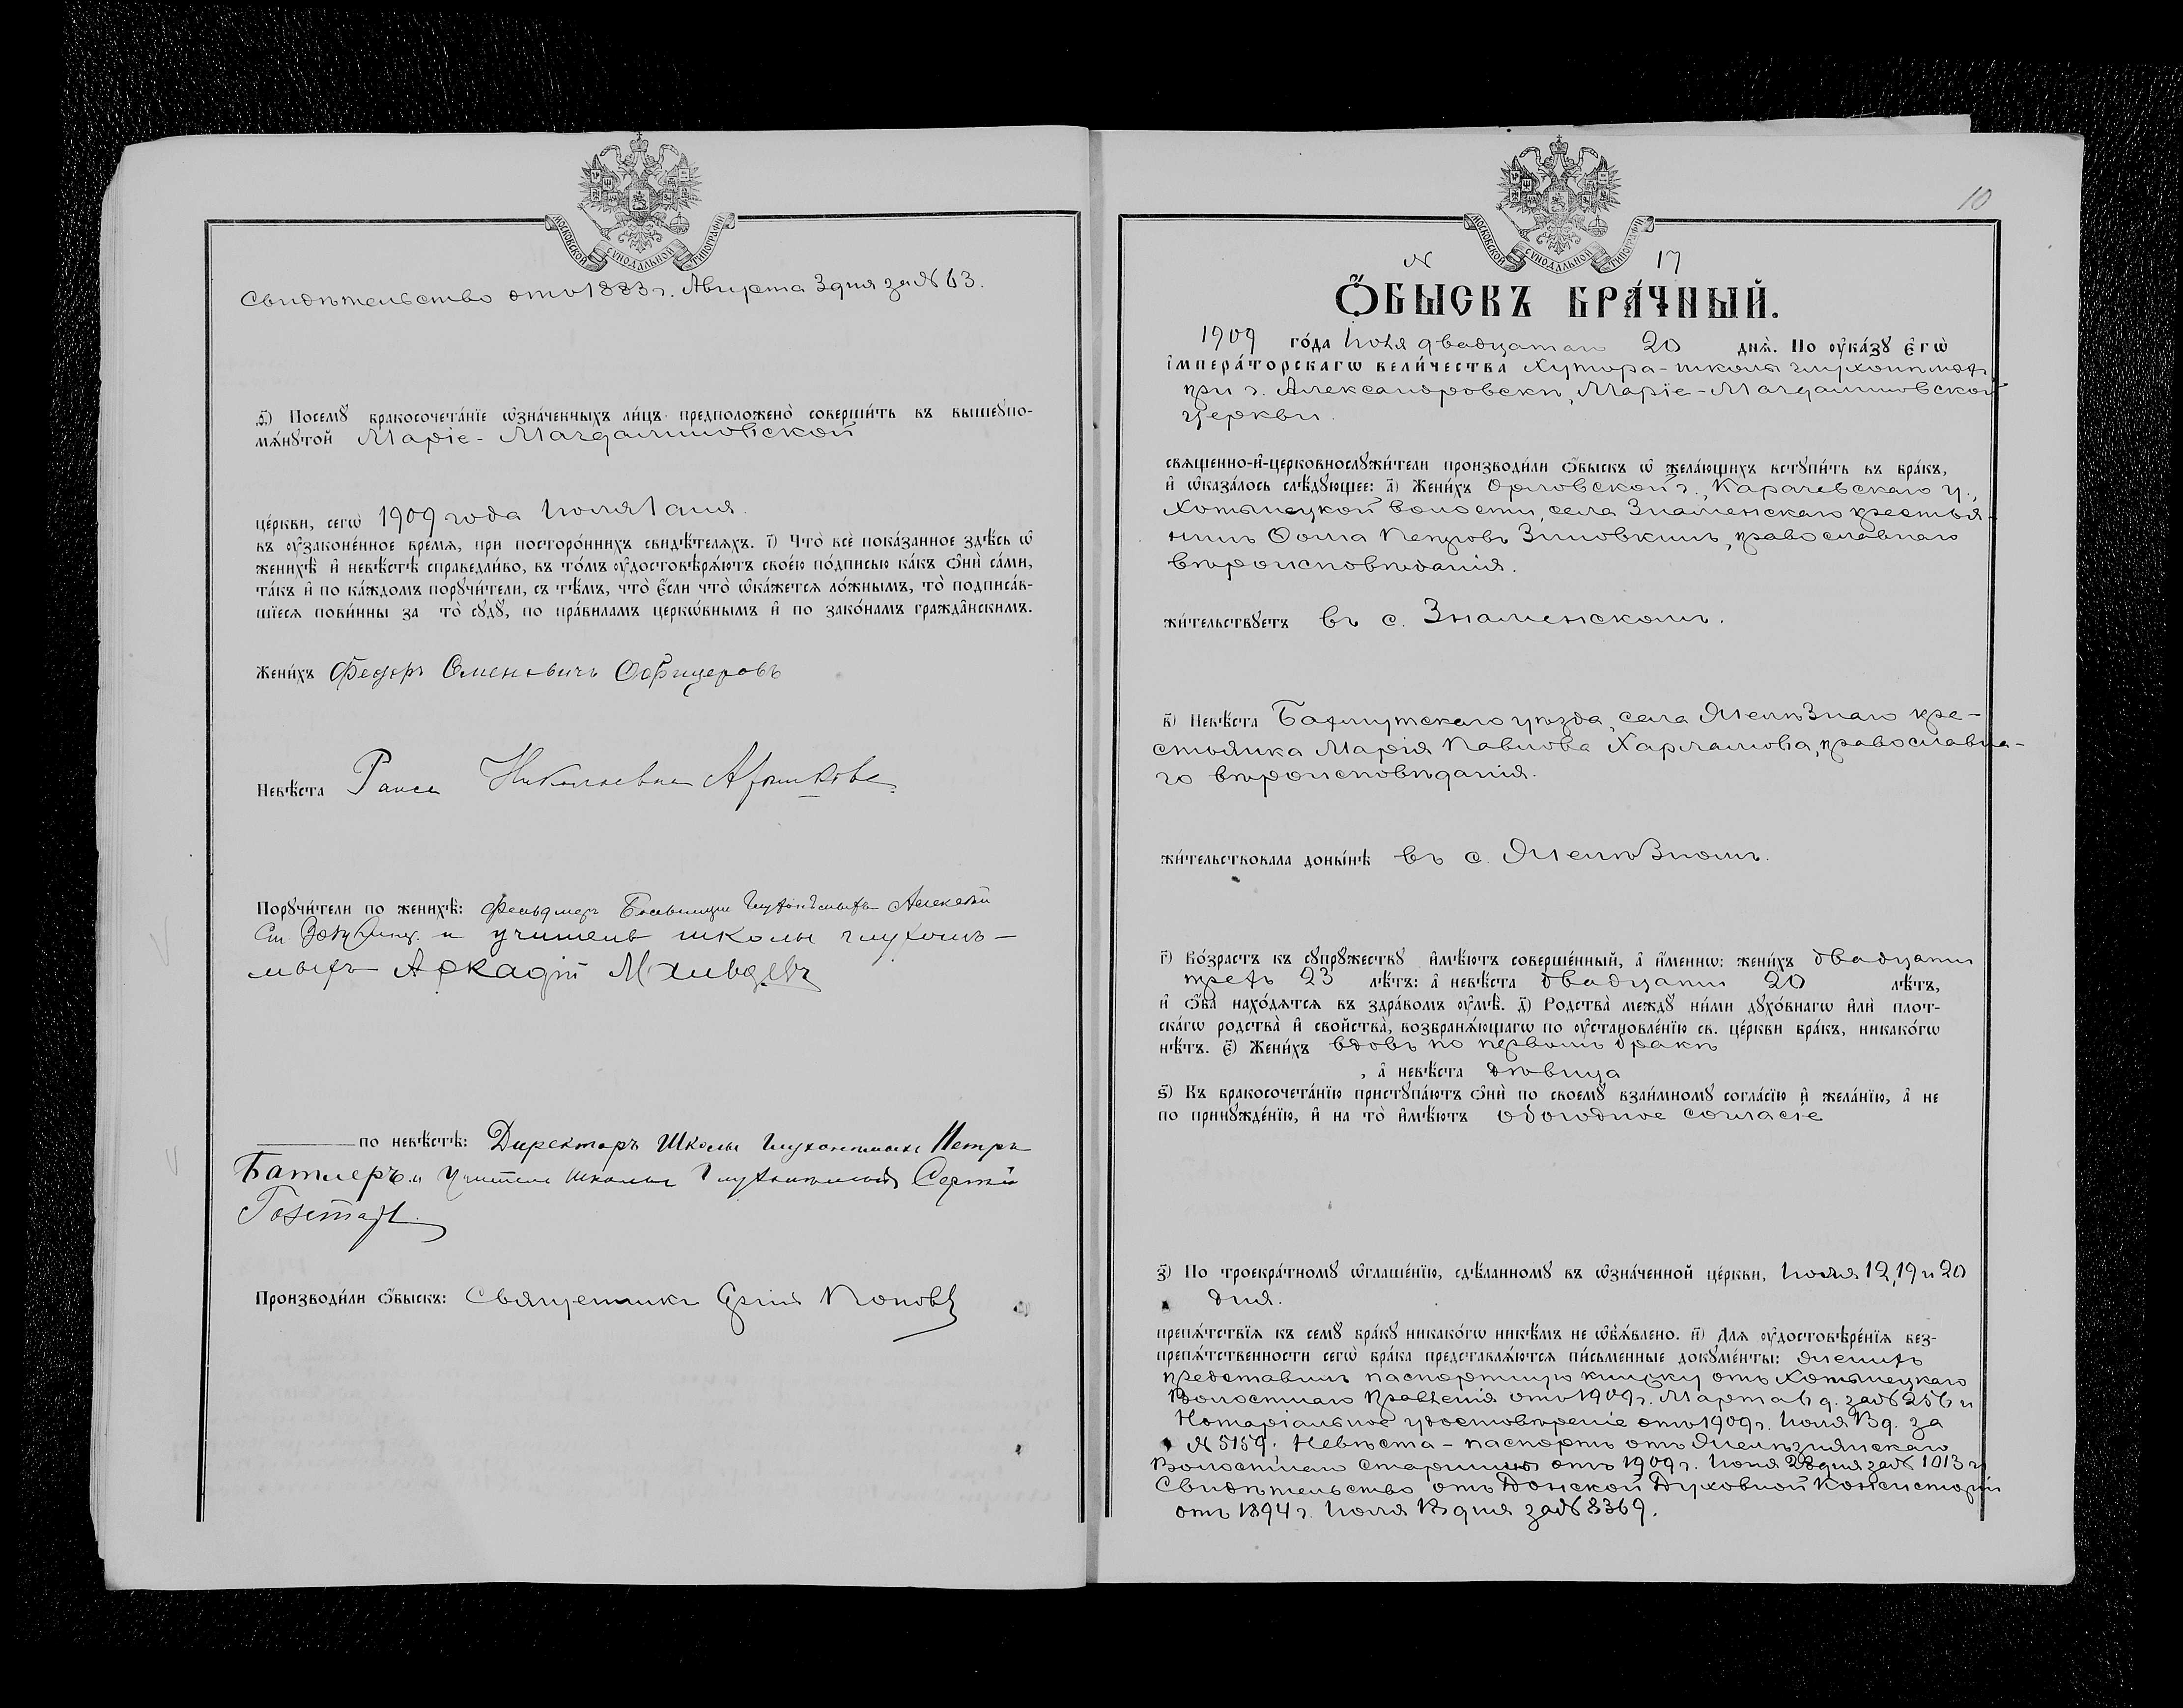 МОСКОВСКОЙ СѴНОДАЛЬНОЙ ТИПОГРАФІИ
Свидѣтельство отъ 1883 г. Августа 3 дня за № 63.
Посемꙋ̀ бракосочета́нїе ѡ҆зна́ченныхъ ли́цъ предположено̀ соверши́ть въ вышеꙋпо-
мѧ́нꙋтой Маріе-Магдалиновской
це́ркви, сегѡ̀ 1909 года Іюля 1 дня.
въ ᲂу҆законе́нное вре́мѧ, при посторо́ннихъ свидѣ́телѧхъ. і҃) Что̀ всѐ пока́занное здѣ́сь ѡ҆
женихѣ̀ и҆ невѣ́стѣ справедли́во, въ то́мъ ᲂу҆достовѣрѧ́ютъ свое́ю по́дписью ка́къ ѻ҆нѝ са́ми,
та́къ и҆ по ка́ждомъ порꙋчи́тели, съ тѣ́мъ, что̀ є҆́сли что̀ ѡ҆ка́жетсѧ ло́жнымъ, то̀ подписа́в-
шїесѧ пови́нны за то̀ сꙋдꙋ̀, по пра́виламъ церкѡ́внымъ и҆ по зако́намъ гражда̑нскимъ.
Жени́хъ Федоръ Семеновичъ Офицеровъ
Невѣ́ста Раиса Николаевна
Порꙋчи́тели по женихѣ̀: Фельдшеръ Больницы Глухонѣмыхъ Алексѣй
и учитель школы глухонѣ-
мыхъ Аркадій
по невѣ́стѣ: Директоръ Школы Глухонѣмыхъ Петръ
Батлеръ и Учитель школы Глухонѣмыхъ Сергѣй
Производи́ли ѻ҆́быскъ: Священникъ Поповъ
10
МОСКОВСКОЙ СѴНОДАЛЬНОЙ ТИПОГРАФІИ
№ 17
Ѻ҆́БЫСКЪ БРА́ЧНЫЙ.
1909 го́да Іюля двадцатаго 20 днѧ̀. По ᲂу҆ка́зꙋ є҆гѡ̀
і҆мпера́торскагѡ вели́чества Хутора-школы глухонѣмыхъ
при г. Александровскѣ, Маріе-Магдалиновской
церкви.
свѧщенно-и҆-церковнослꙋжи́тели производи́ли ѻ҆́быскъ ѡ҆ жела́ющихъ встꙋпи́ть въ бра́къ,
и҆ ѡ҆каза́лось слѣ́дꙋющее: а҃) Жени́хъ Орловской г., Карачевскаго у.,
Хотынецкой волости, села Знаменскаго крестья-
нинъ Ѳома Петровъ Зиновкинъ, православнаго
вѣроисповѣданія.
жи́тельствꙋетъ въ с. Знаменскомъ.
в҃) Невѣ́ста Бахмутскаго уѣзда, села Желѣзнаго кре-
стьянка Марія Павлова Харламова, православна-
го вѣроисповѣданія.
жи́тельствовала доны́нѣ въ с. Желѣзномъ.
г҃) Во́зрастъ къ сꙋпрꙋ́жествꙋ и҆мѣ́ютъ соверше́нный, а҆ и҆́меннѡ: жени́хъ двадцати
трехъ 23 лѣ́тъ: а҆ невѣ́ста двадцати 20 лѣ́тъ,
и҆ ѻ҆́ба нахо́дѧтсѧ въ здра́вомъ ᲂу҆мѣ̀. д҃) Родства̀ междꙋ̀ ни́ми дꙋхо́внагѡ и҆лѝ плот-
ска́гѡ родства̀ и҆ сво́йства, возбранѧ́ющагѡ по ᲂу҆становле́нїю св. це́ркви бра́къ, никако́гѡ
нѣ́тъ. є҃) Жени́хъ вдовъ по первомъ бракѣ
, а҆ невѣ́ста дѣвица
ѕ҃) Къ бракосочета́нїю пристꙋпа́ютъ ѻ҆нѝ по своемꙋ̀ взаи́мномꙋ согла́сїю и҆ жела́нїю, а҆ не
по принꙋжде́нїю, и҆ на то̀ и҆мѣ́ютъ обоюдное согласіе
з҃) По троекра́тномꙋ ѡ҆глаше́нїю, сдѣ́ланномꙋ въ ѡ҆зна́ченной це́ркви, Іюля 12, 19 и 20
дня.
препѧ́тствїѧ къ семꙋ̀ бра́кꙋ никако́гѡ никѣ́мъ не ѡ҆б̾ѧ́влено. и҃) Длѧ ᲂу҆достовѣре́нїѧ без-
препѧ́тственности сегѡ̀ бра́ка представлѧ́ютсѧ пи́сьменные докꙋме́нты: женихъ
представилъ паспортную книжку отъ Хотынецкаго
Волостнаго Правленія отъ 1909 г. Марта 6 д. за № 256 и
Нотаріальное удостовѣреніе отъ 1909 г. Іюля 13 д. за
№ 5159; Невѣста – паспортъ отъ Желѣзнянскаго
Волостнаго Старшины отъ 1909 г. Іюня 28 дня за № 1013 и
Свидѣтельство отъ Донской Духовной Консисторіи
отъ 1894 г. Іюля 13 дня за № 8369.